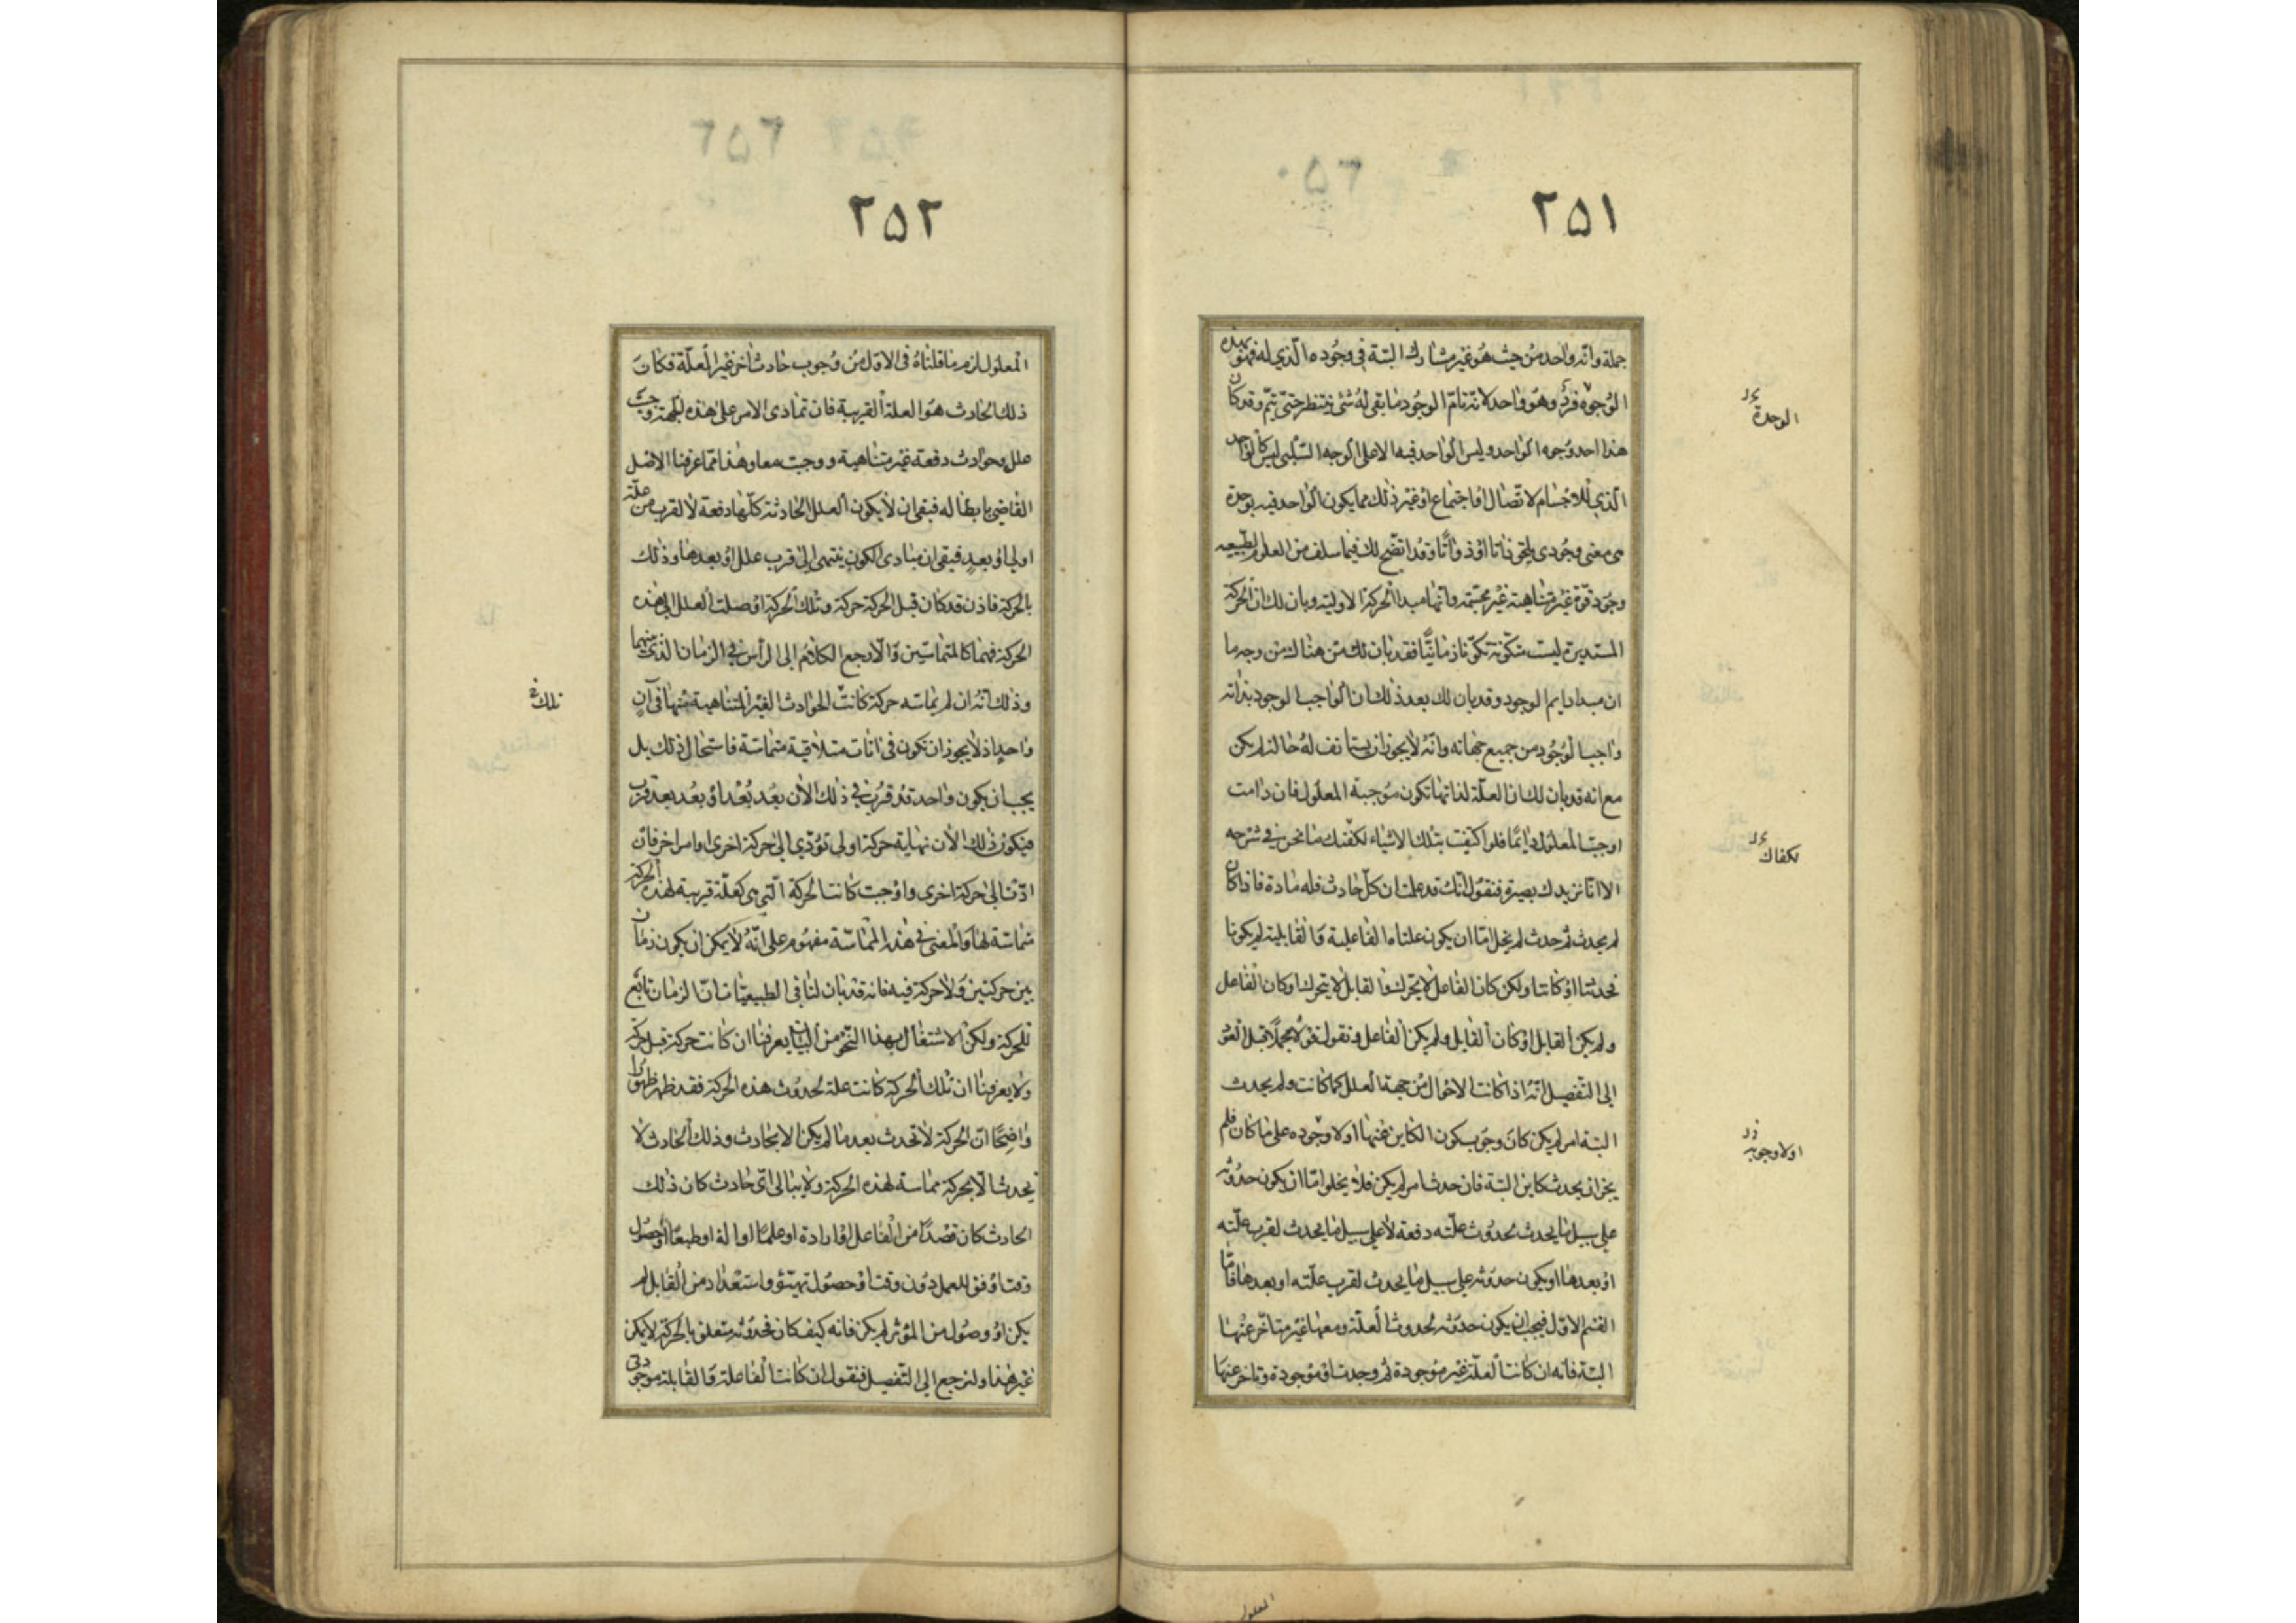 ٢٥١
جملة وانه واحد من حيث هو غير مشارك البتة في وجوده الذي له فهو بهذه
الوجوه فرد وهو واحد لانه تام الوجود ما بقي له شئ ينتظر حتى يتم وقد كان
هذا احد وجوه الواحد وليس الواحد فيه الا على الوجه السلبي ليس كالواحد
الذي للاجسام لاتصال او اجتماع او غير ذلك مما يكون الواحد فيه بوحدة
هي معنى وجودي يلحق ذاتا او ذواتا وقد اتضح لك فيما سلف من العلوم الطبيعيه
وجود قوة غير متناهية غير مجسمة وانها مبدا الحركة الاولية وبان لك ان الحركة
المستديرة ليست متكونة تكونا زمانيا فقد بان لك من هناك من وجه ما
ان مبدا دايم الوجود وقد بان لك بعد ذلك ان الواجب الوجود بذاته
واجب الوجود من جميع جهاته وانه لا يجوز ان يستانف له حالة لم يكن
مع انه قد بان لك ان العلة لذاتها تكون موجبة المعلول فان دامت
اوجبت المعلول دايما فلو اكتفيت بتلك الاشياء لكفتك ما نحن في شرحه
الا انا نزيدك بصيرة فنقول انك قد علمت ان كل حادث فله مادة فاذا كان
لم يحدث ثم حدث لم يخل اما ان يكون علتاه الفاعلية والقابلية لم يكونا
فحدثتا او كانتا ولكن كان الفاعل لا يحرك والقابل لا يتحرك او كان الفاعل
ولم يكن القابل او كان القابل ولم يكن الفاعل ونقول قولا مجملا قبل العود
الى التفصيل انه اذا كانت الاحوال من جهة العلل كما كانت ولم يحدث
البتة امر لم يكن كان وجوب كون الكاين عنها اولا وجوده على ما كان فلم
يجز ان يحدث كاين البتة فان حدث امر لم يكن فلا يخلو اما ان يكون حدوثه
على سبيل ما يحدث لحدوث علته دفعة لا على سبيل ما يحدث لقرب علته
او بعدها او يكون حدوثه على سبيل ما يحدث لقرب علته او بعدها فاما
القسم الاول فيجب ان يكون حدوثه لحدوث العلة ومعها غير متاخر عنها
البتة فانه ان كانت العلة غير موجودة ثم وجدت او موجودة وتاخر عنها
الوحدة
لكفاك
اولا وجوبه
المعلول
٢٥٢
المعلول لزم ما قلناه في الاول من وجوب حادث اخر غير العلة فكان
ذلك الحادث هو العلة القريبة فان تمادى الامر على هذه الجهة وجبت
علل وحوادث دفعة غير متناهية ووجبت معا وهذا مما عرفنا الاصل
القاضي بابطاله فبقي ان لا يكون العلل الحادثة كلها دفعة لا لقرب من علة
اولى او بعد فبقي ان مبادى الكون ينتهى الى قرب علل او بعدها وذلك
بالحركة فاذن قد كان قبل الحركة حركة وتلك الحركة اوصلت العلل الى هذه
الحركة فهما كالمتماسين والا رجع الكلام الى الراس في الزمان الذي بينهما
وذلك انه ان لم يماسه حركة كانت الحوادث الغير المتناهية منها في آن
واحد اذ لا يجوز ان تكون في انات متلاقية متماسة فاستحال ذلك بل
يجب ان يكون واحد قد قرب في ذلك الان بعد بعد او بعد بعد قرب
فيكون ذلك الان نهاية حركة اولى تودي الى حركة اخرى او امر اخر فان
ادت الى حركة اخرى واوجبت كانت الحركة التي هي كعلة قريبة لهذه الحركة
مماسة لها والمعنى في هذه المماسة مفهوم على انه لا يمكن ان يكون زمان
بين حركتين ولا حركة فيه فانه قد بان لنا في الطبيعيات ان الزمان تابع
للحركة ولكن الاشتغال بهذا النحو من البيان يعرفنا ان كانت حركة قبل حركة
ولا يعرفنا ان تلك الحركة كانت علة لحدوث هذه الحركة فقد ظهر ظهورا
واضحا ان الحركة لا تحدث بعد ما لم يكن الا بحادث وذلك الحادث لا
يحدث الا بحركة مماسة لهذه الحركة ولا يبالى اى حادث كان ذلك
الحادث كان قصدا من الفاعل او ارادة او علما او الة او طبعا او حصول
وقت اوفق للعمل دون وقت او حصول تهيئو واستعداد من القابل لم
يكن او وصول من المؤثر لم يكن فانه كيف كان فحدوثه متعلق بالحركة لا يمكن
غير هذا ولنرجع الى التفصيل فنقول ان كانت الفاعلة والقابلة موجودتى
تلك